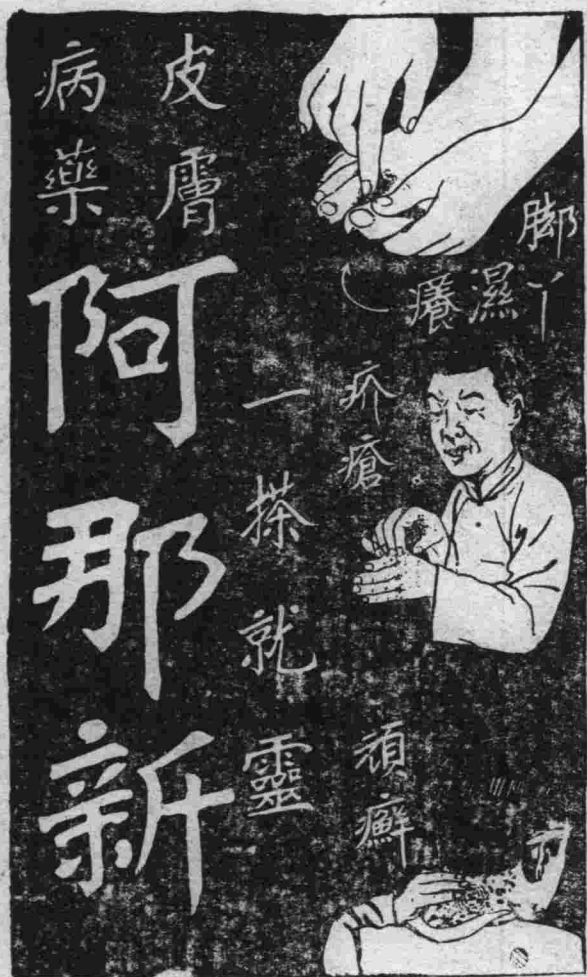 脚丫
濕癢
疥瘡。
頑癬
一搽就靈
皮膚
病藥
阿那新